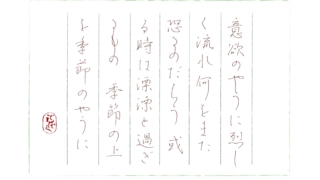 意欲のやうに烈し
く流れ何をまた
恐るのだらう或
る時は漂漂と過ぎ
るもの 季節の上
を季節のやうに